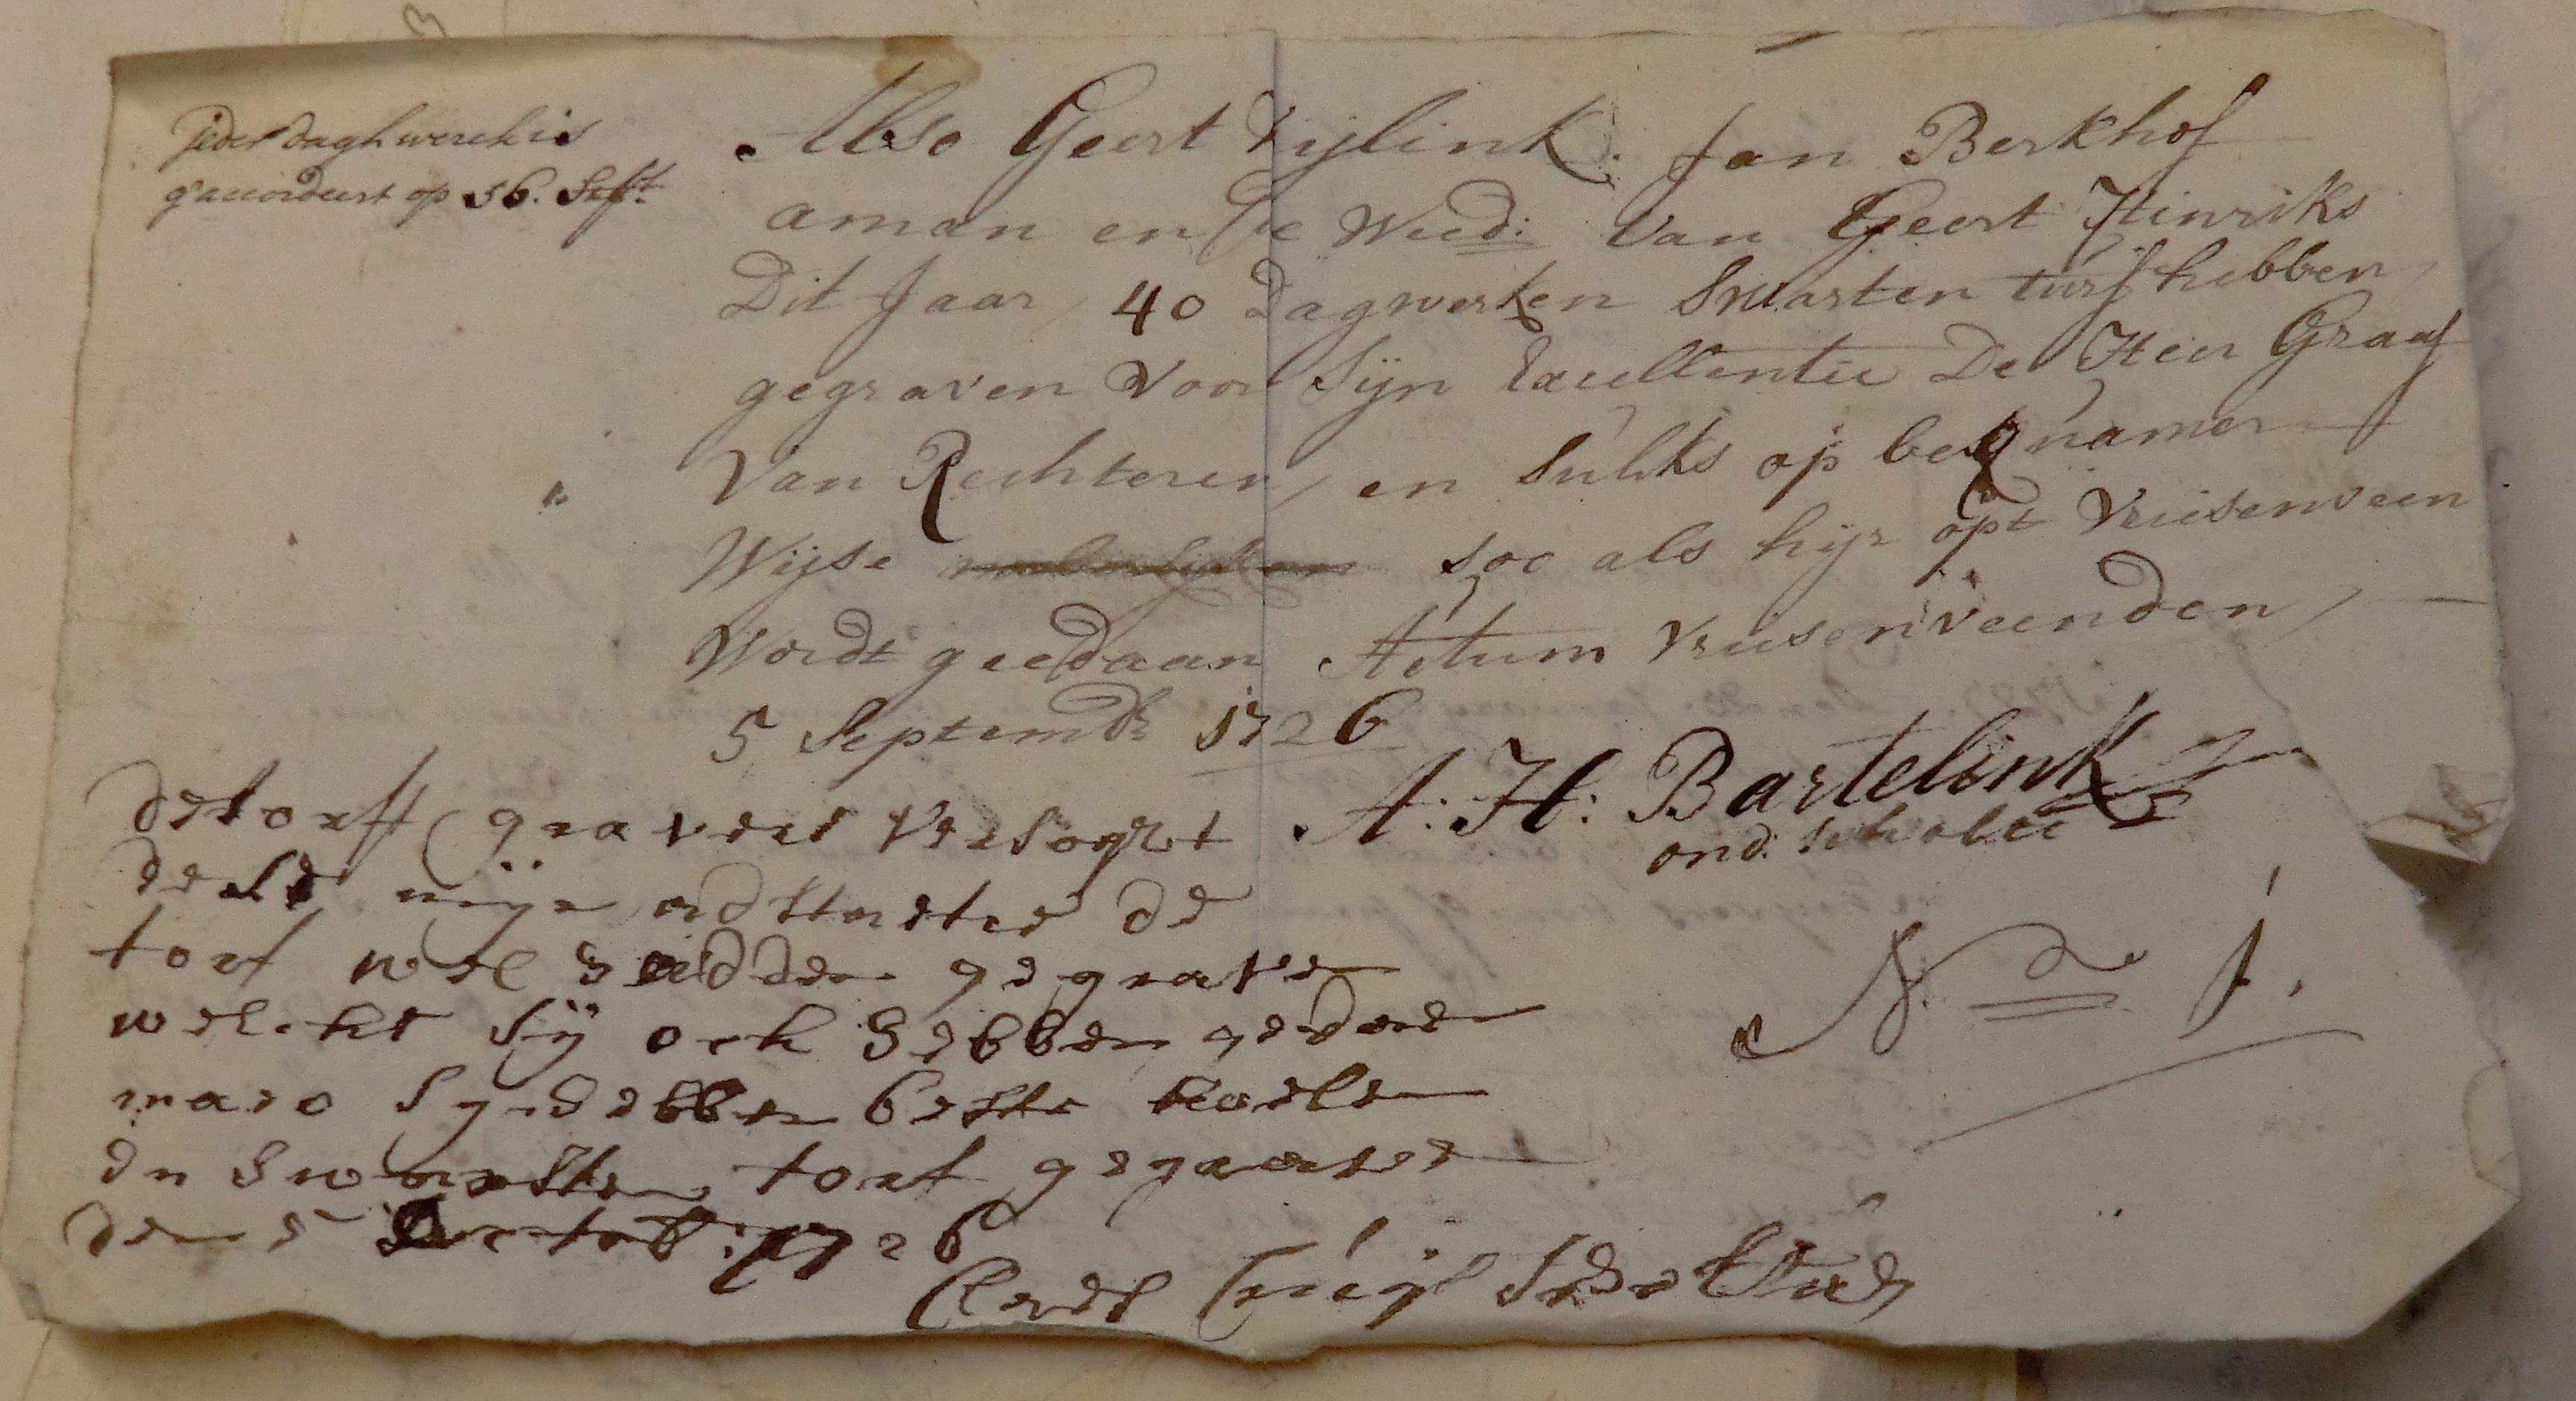 jeder daghwerck is
g'accordeert op 56. 
Also Geert Jan Berkhof
aman en de Wed: van Geert Hinriks
Dit Jaar 40 Dagwerken Swarten turf hebben
gegraven voor Sijn Excellentie De Heer Graaf
Van Rechteren, en Sulks op beqnamen
Wijse soo als hijr opt Vriesenveen
Wordt geedaan Actum Vriesenveen den
5 Septembr 1726
A: H: Bartelink
ond: Scholte
N 1.
de torff gravers versoght
dese mijn de
torf wel gegraven
welcke sij ock hebben gedaen
maer sy hebben beste
en swarten torf gegraven
den 5 Octob: 1726